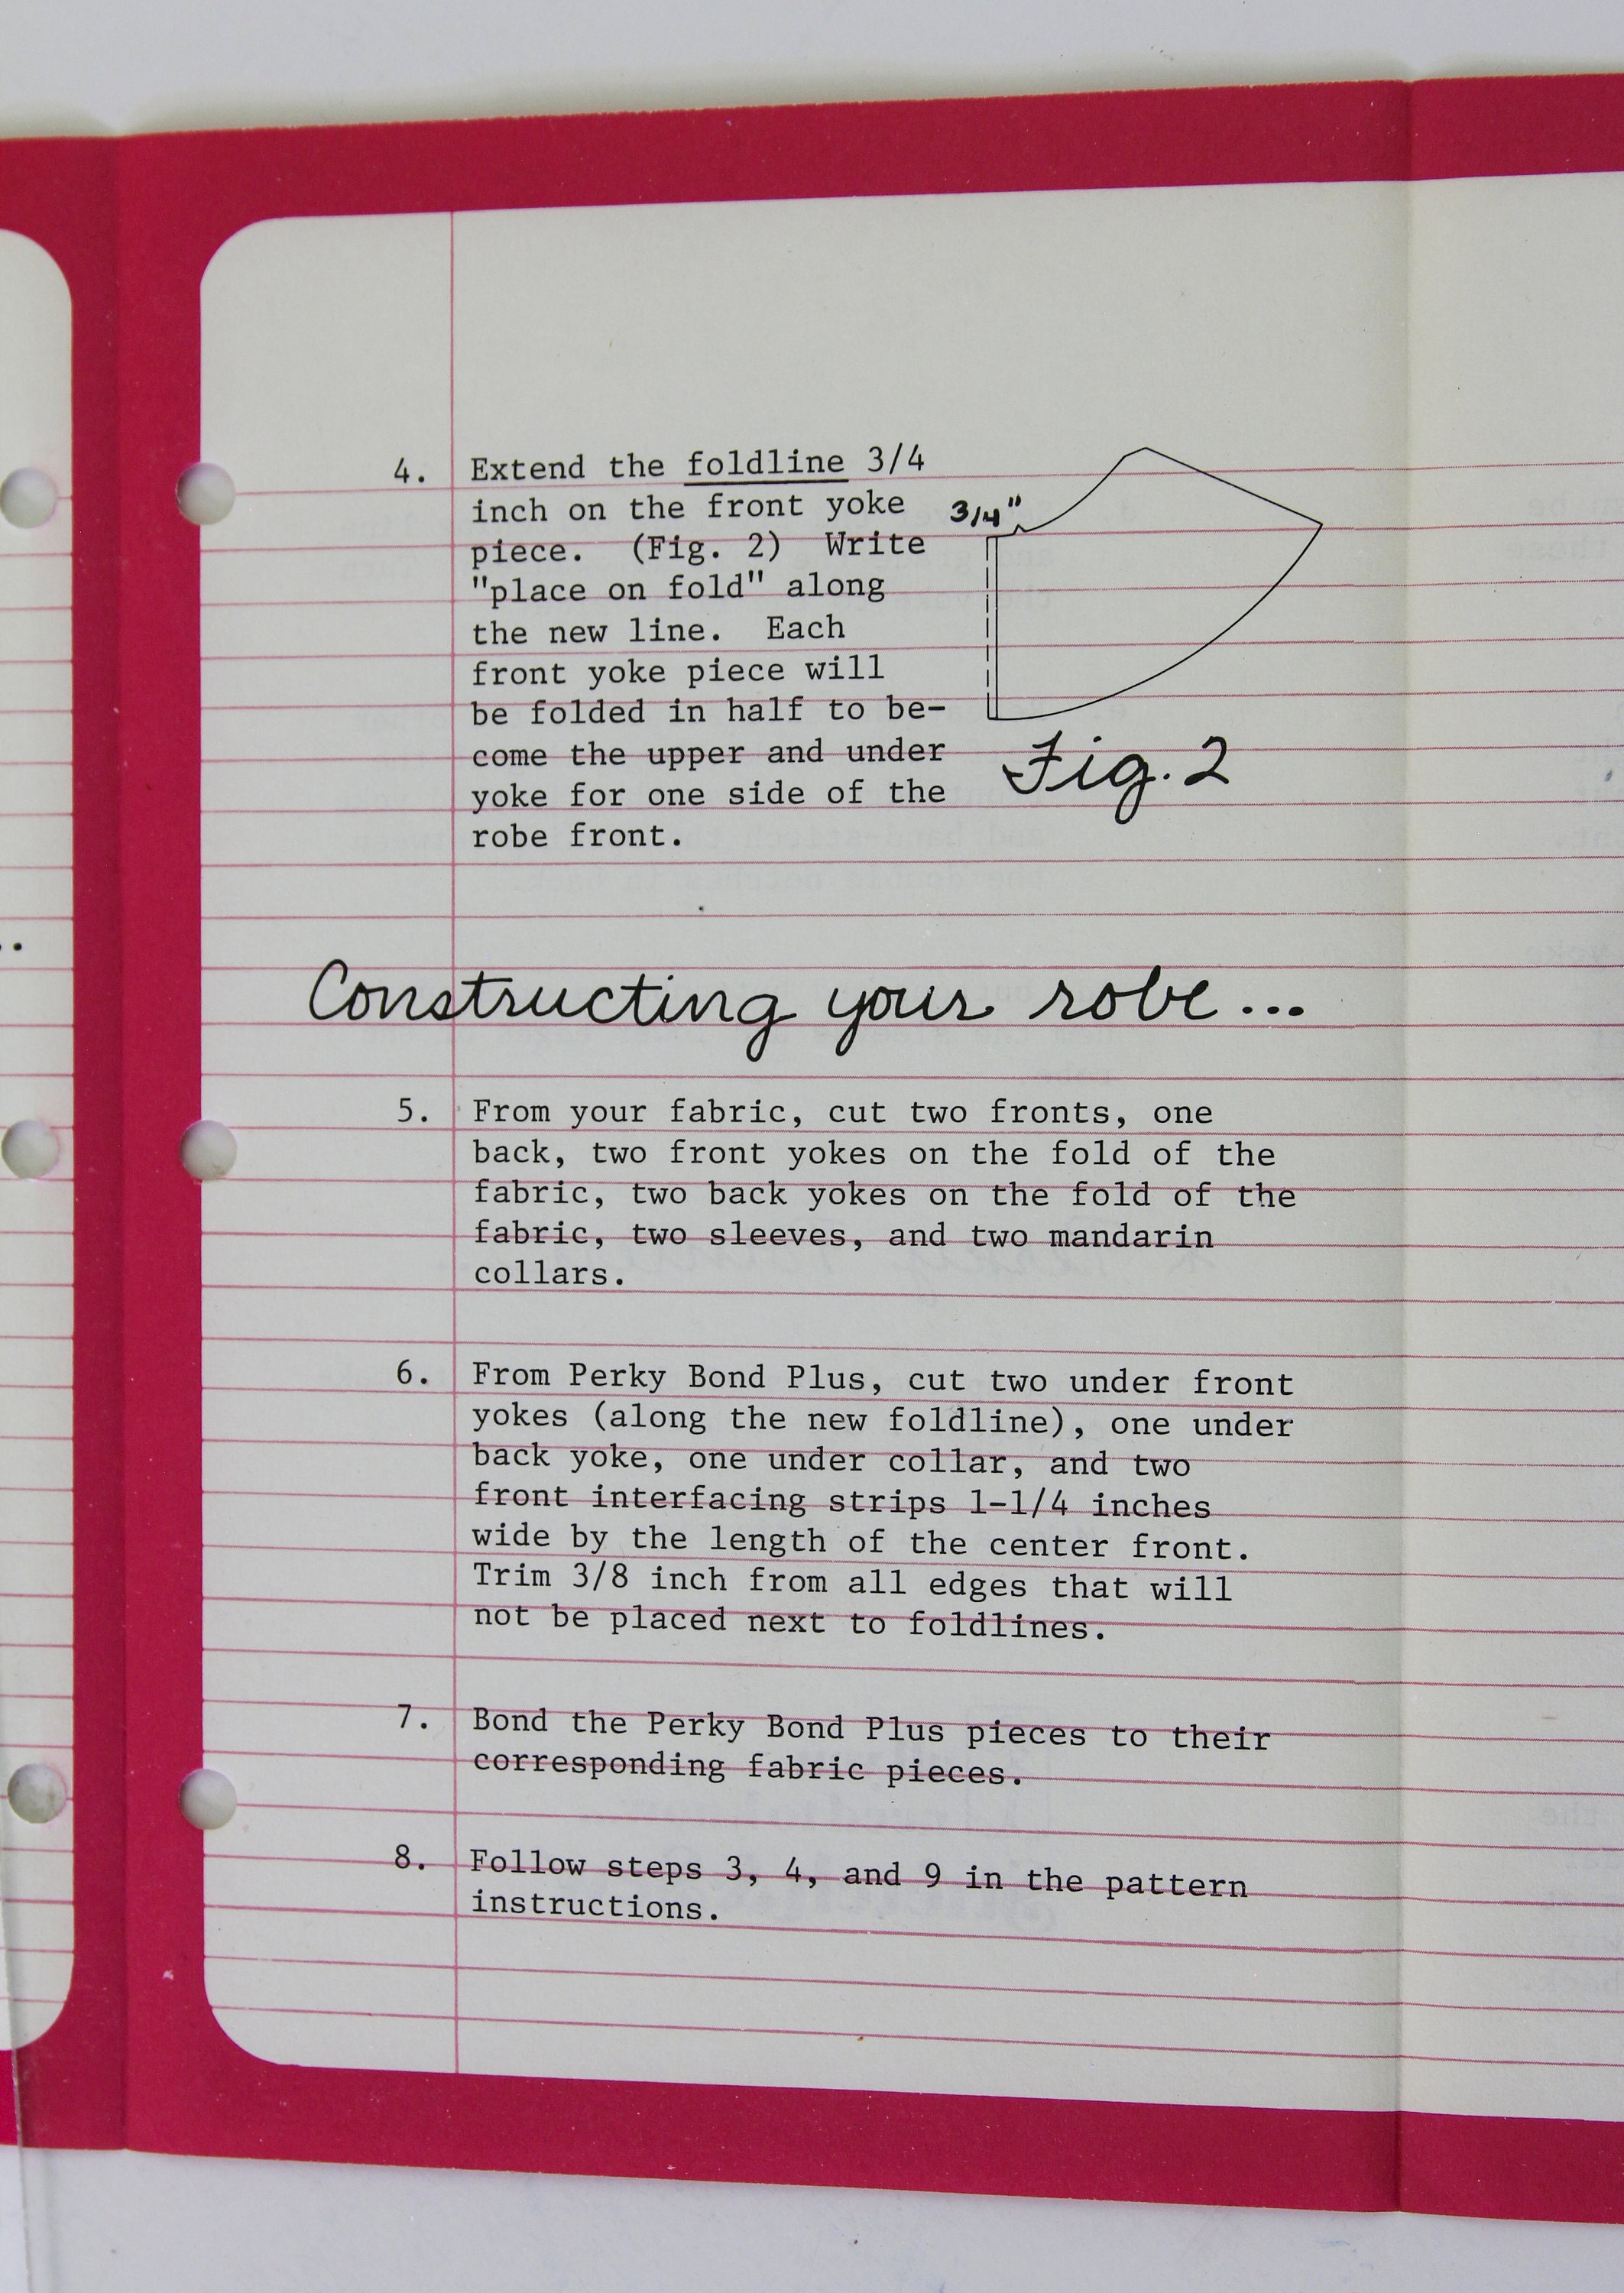 4. Extend the foldline 3/4
inch on the front yoke
piece. (Fig. 2) Write
"place on fold" along
the new line. Each
front yoke piece will
be folded in half to be-
come the upper and under
yoke for one side of the
robe front.
3/4"
Fig. 2
Constructing your robe...
5. From your fabric, cut two fronts, one
back, two front yokes on the fold of the
fabric, two back yokes on the fold of the
fabric, two sleeves, and two mandarin
collars.
6. From Perky Bond Plus, cut two under front
yokes (along the new foldline), one under
back yoke, one under collar, and two
front interfacing strips 1-1/4 inches
wide by the length of the center front.
Trim 3/8 inch from all edges that will
not be placed next to foldlines.
7. Bond the Perky Bond Plus pieces to their
corresponding fabric pieces.
8. Follow steps 3, 4, and 9 in the pattern
instructions.